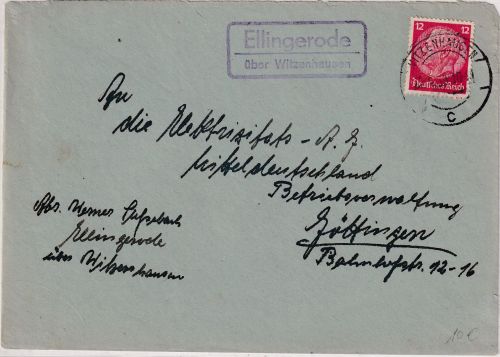 Ellingerode
über Witzenhausen
12 12
Deutsches Reich
WITZENHAUSEN
c
An
die Elektrizitäts-A.G.
Mitteldeutschland
Betriebsverwaltung
Göttingen
Bahnhofstr. 12-16
Abs. Werner
Ellingerode
über Witzenhausen
10 €